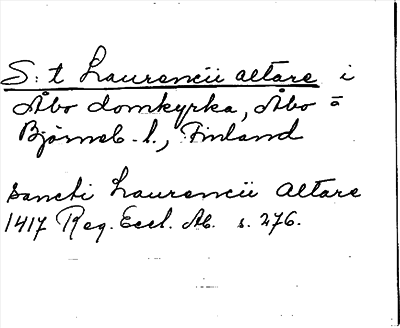 S:t Laurencii altare i
Åbo domkyrka, Åbo o
Björneb. l., Finland
sancti Laurencii altare
1417 Reg. Eccl. Ab. s. 276.